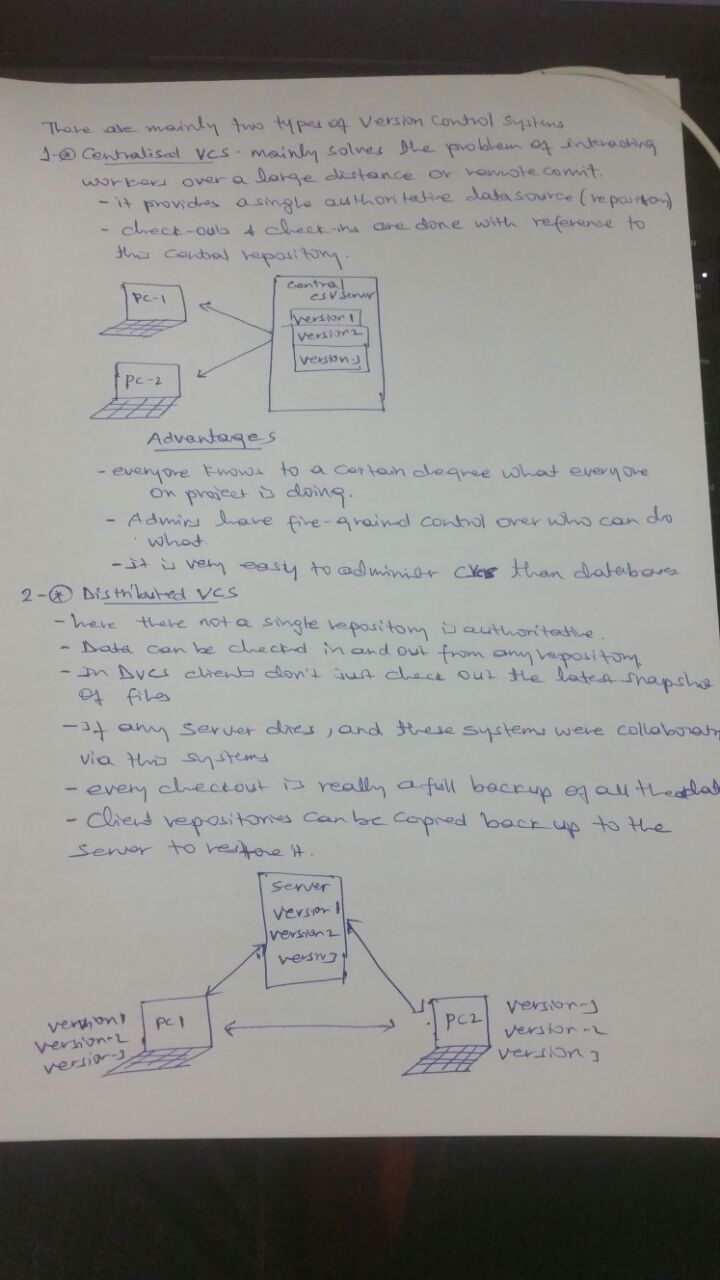 There are mainly two types of Version Control Systems
1-* Centralised VCS - mainly solves the problem of interacting
workers over a large distance or remote comit.
- it provides a single authoritative data source (repository)
- check-outs & check-ins are done with reference to
this central repository.
PC-1
PC-2
Central
CSV Server
version 1
version 2
version-3
Advantages
- everyone knows to a certain degree what everyone
on project is doing.
- Admins have fine-grained control over who can do
what.
- it is very easy to administr CVCS than databases
2-* Distributed VCS
- here there not a single repository is authoritative.
- Data can be checked in and out from any repository.
- In DVCS clients don't just check out the latest snapshot
of files
- If any server dies, and these systems were collaborat
via this systems
- every checkout is really a full backup of all the dat
- Client repositories can be copied back up to the
server to restore it.
Server
version 1
version 2
versn 3
PC1
version 1
version-2
version-3
PC2
version-1
version-2
version 3